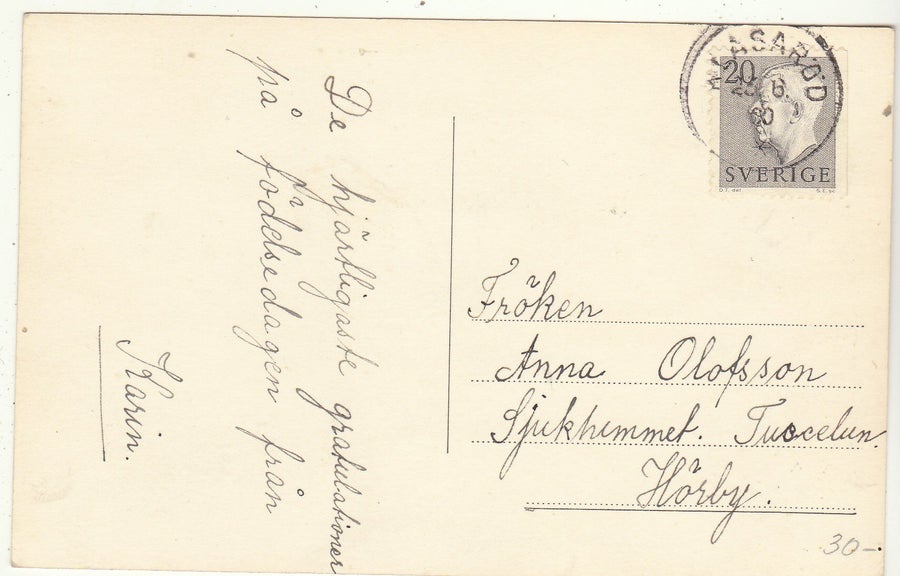 De hjärtligaste gratulationer
på födelsedagen från
Karin.
20
SVERIGE
Fröken
Anna Olofsson
Sjukhemmet. Tuscelun.
Hörby.
30-